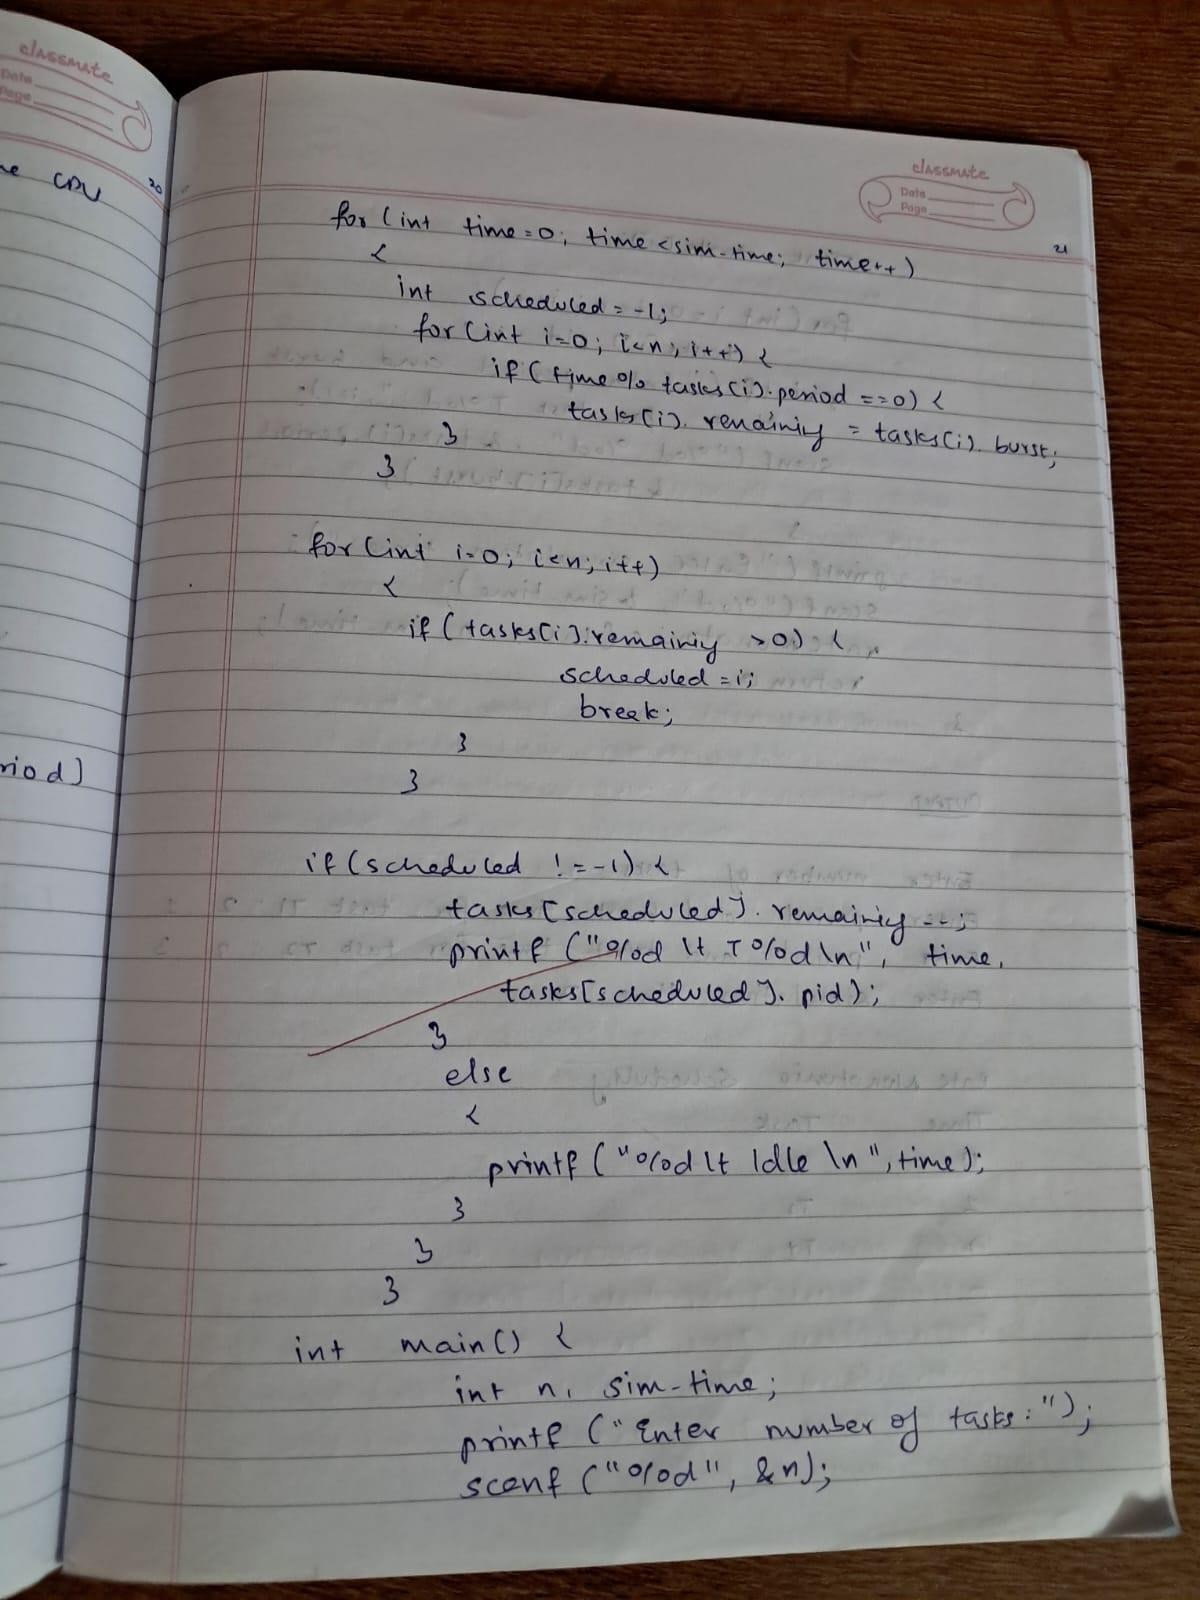 classmate
Date
Page
20
CPU
riod]
classmate
Date
Page
21
for (int time=0; time<sim-time; time++)
{
int scheduled = -1;
for (int i=0; i<n; i++) {
if (time % tasks[i].period ==0) {
tasks[i]. remaining = tasks[i]. burst;
}
}
for (int i=0; i<n; i++)
{
if (tasks[i].remaining >0) {
scheduled =i;
break;
}
}
if (scheduled != -1) {
tasks [scheduled]. remaining --;
printf ("%d \t T%d\n", time,
tasks[scheduled]. pid);
}
else
{
printf ("%d \t Idle \n", time);
}
}
}
int main() {
int n, sim-time;
printf ("Enter number of tasks: ");
scanf ("%d", &n);